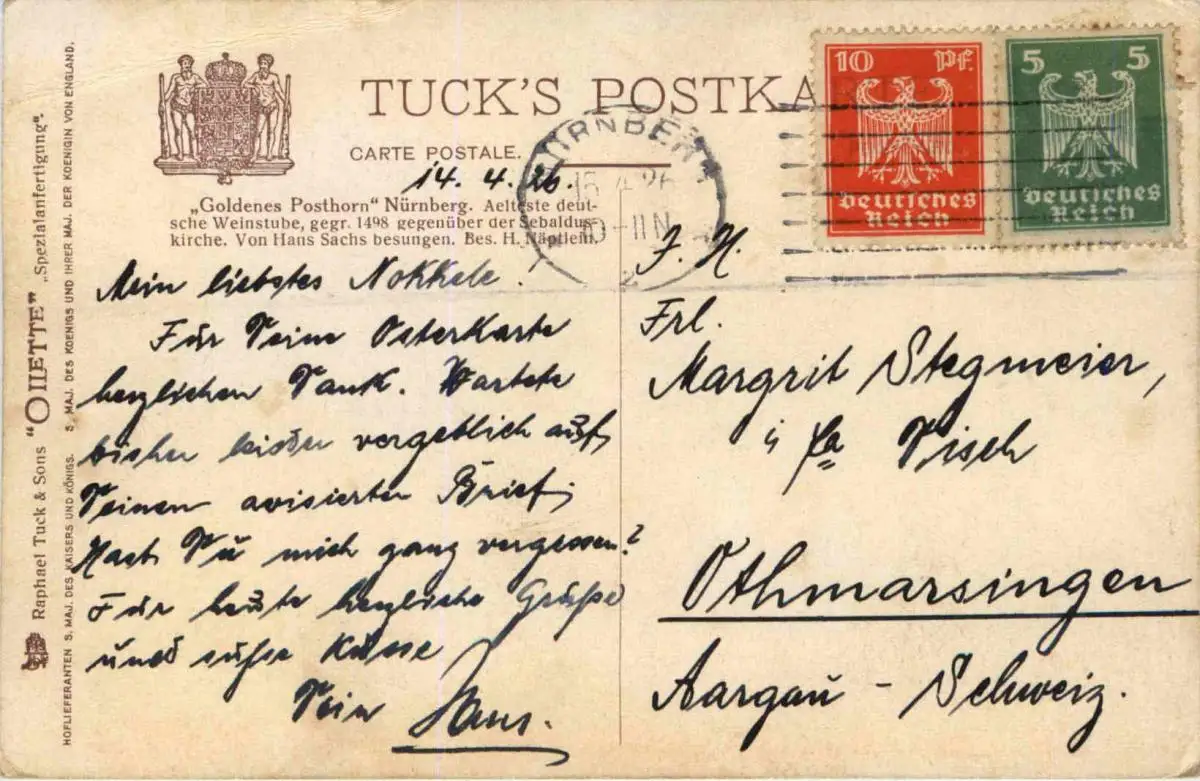 TUCK'S POSTKA
CARTE POSTALE.
14. 4. 26.
„Goldenes Posthorn" Nürnberg. Aelteste deut-
sche Weinstube, gegr. 1498 gegenüber der Sebaldus-
kirche. Von Hans Sachs besungen. Bes. H.
Mein liebstes Nokkele!
Für Deine Osterkarte
herzlichen Dank. Wartete
bisher leider vergeblich auf
Deinen avisierten Brief;
Hast Du mich ganz vergessen?
Für heute herzliche Grüsse
und süsse Küsse
Dein Hans.
Raphael Tuck & Sons "OILETTE" „Spezialanfertigung".
HOFLIEFERANTEN S. MAJ. DES KAISERS UND KÖNIGS. S. MAJ. DES KOENIGS UND IHRER MAJ. DER KOENIGIN VON ENGLAND.
NÜRNBERG
15 4 26
-11 N
2
10 Pf.
Deutsches
Reich
5 5
Deutsches
Reich
J. H.
Frl.
Margrit Stegmeier,
Fa Disch
Othmarsingen
Aargau - Schweiz.